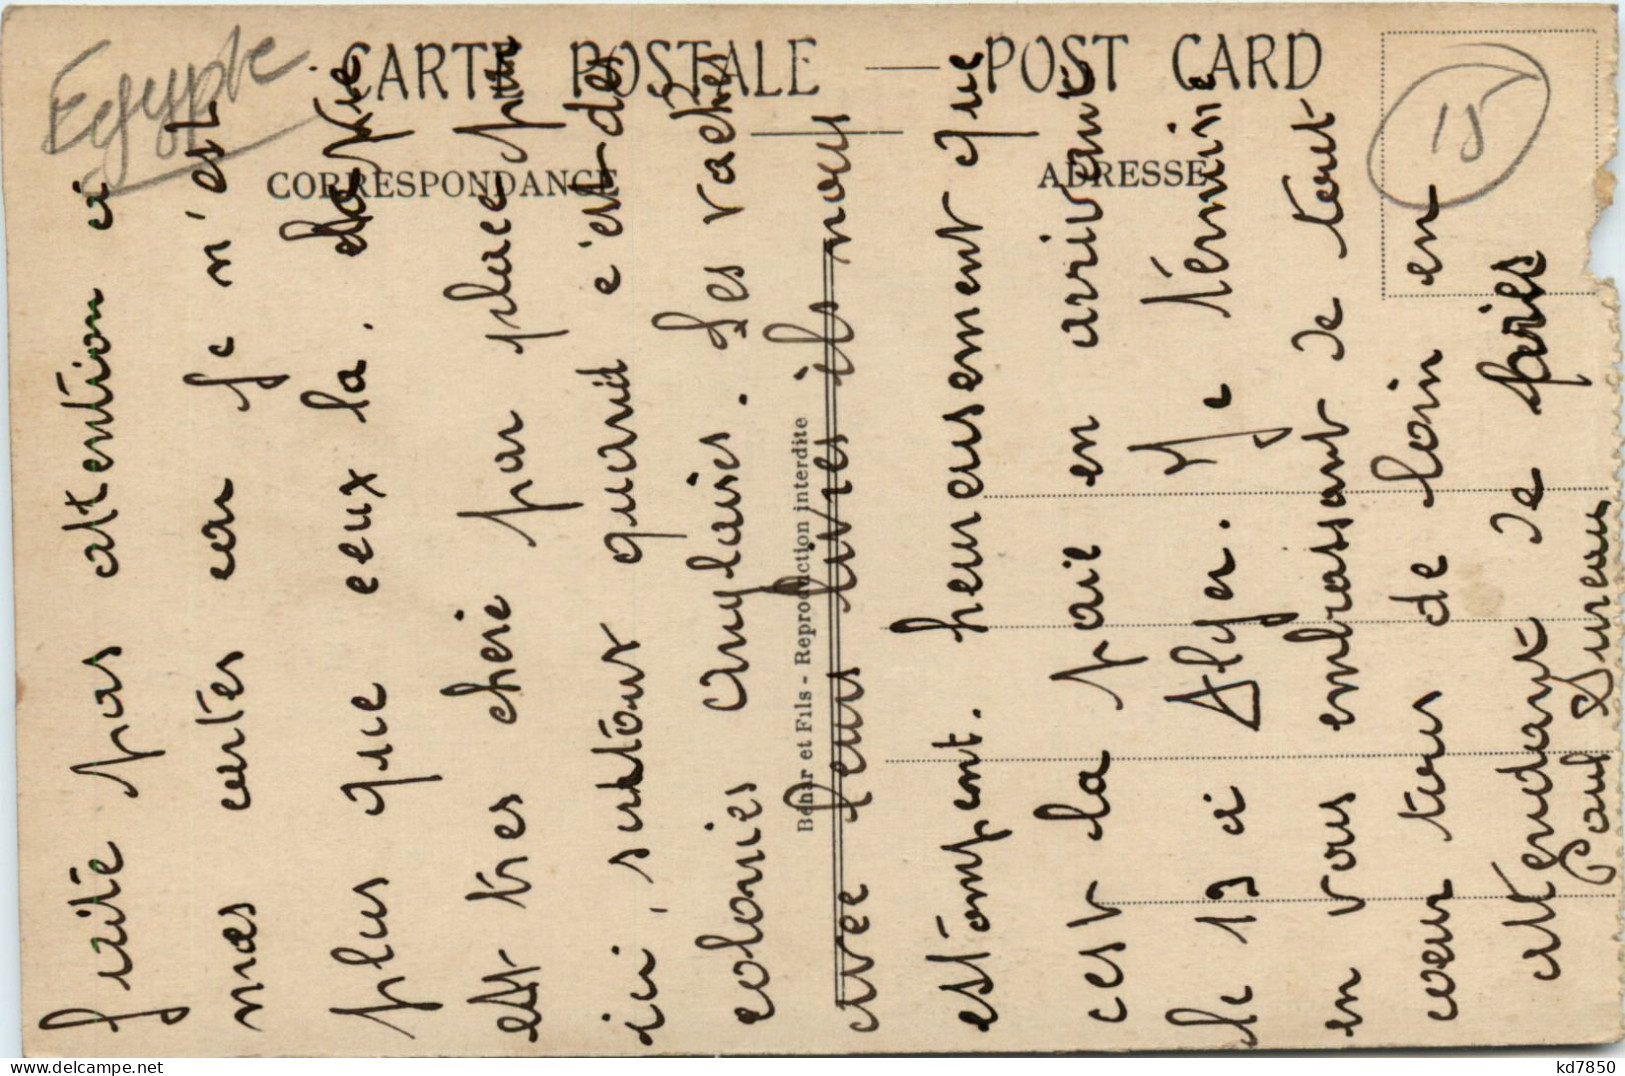 Egypte
15
CARTE POSTALE — POST CARD
CORRESPONDANCE
ADRESSE
Behar et Fils - Reproduction interdite
faite pas attention a
mes cartes car se n'est
plus que ceux la. La vie
est tres chere par place pur
ici, surtout quand c'est des
colonies Anglaises. Les vaches
avec leurs livres ils nous
estompent. heureusement que
c'est la paie en arrivant
le 19 a Alger. Je termine
en vous embrassant de tout
cœur tous de loin en
attendant de près
Paul Dureau
kd7850